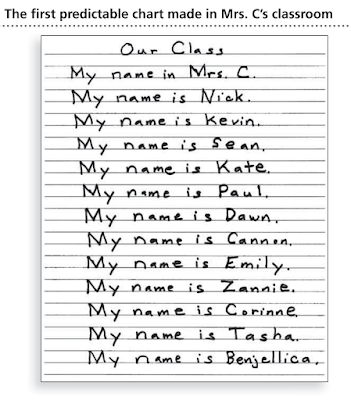 The first predictable chart made in Mrs. C's classroom
Our Class
My name in Mrs. C.
My name is Nick.
My name is Kevin.
My name is Sean.
My name is Kate.
My name is Paul.
My name is Dawn.
My name is Cannon.
My name is Emily.
My name is Zannie.
My name is Corinne.
My name is Tasha.
My name is Benjellica.